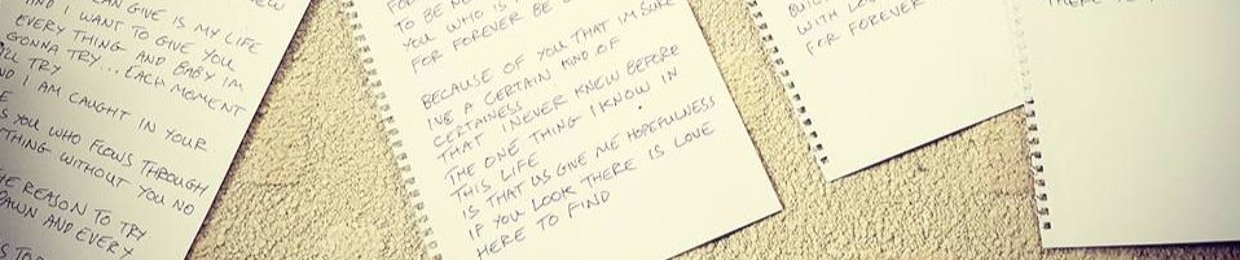 CAN GIVE IS MY LIFE
AND I WANT TO GIVE YOU
EVERY THING AND BABY IM
GONNA TRY... EACH MOMENT
TRY
I AM CAUGHT IN YOUR
YOU WHO FLOWS THROUGH
THING WITHOUT YOU NO
REASON TO TRY
AND EVERY
TO BE
YOU WHO IS
FOR FOREVER BE
BECAUSE OF YOU THAT IM SURE
IVE A CERTAIN KIND OF
CERTAINESS
THAT I NEVER KNEW BEFORE
THE ONE THING I KNOW IN
THIS LIFE
IS THAT US GIVE ME HOPEFULNESS
IF YOU LOOK THERE IS LOVE
HERE TO FIND
WITH
FOR FOREVER